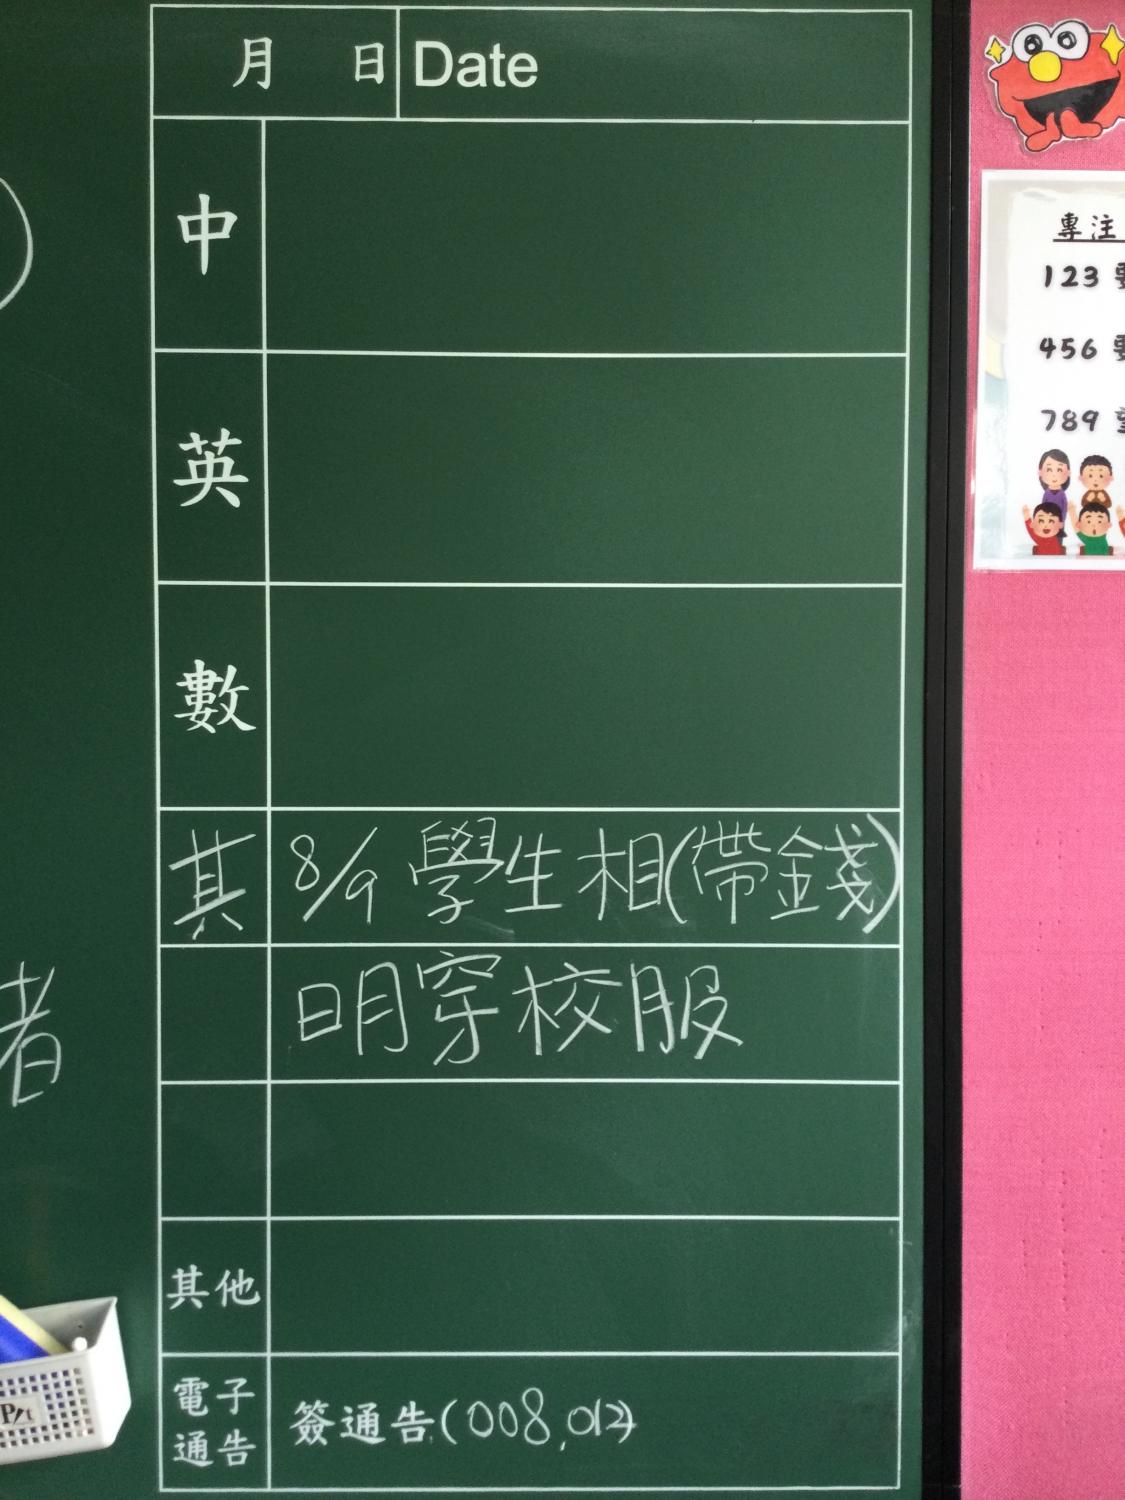 月 日 Date
中
英
數
其 8/9 學生相(帶金錢)
明穿校服
其他
電子通告 簽通告(008,012)
者
專注
123 要
456 要
789 望